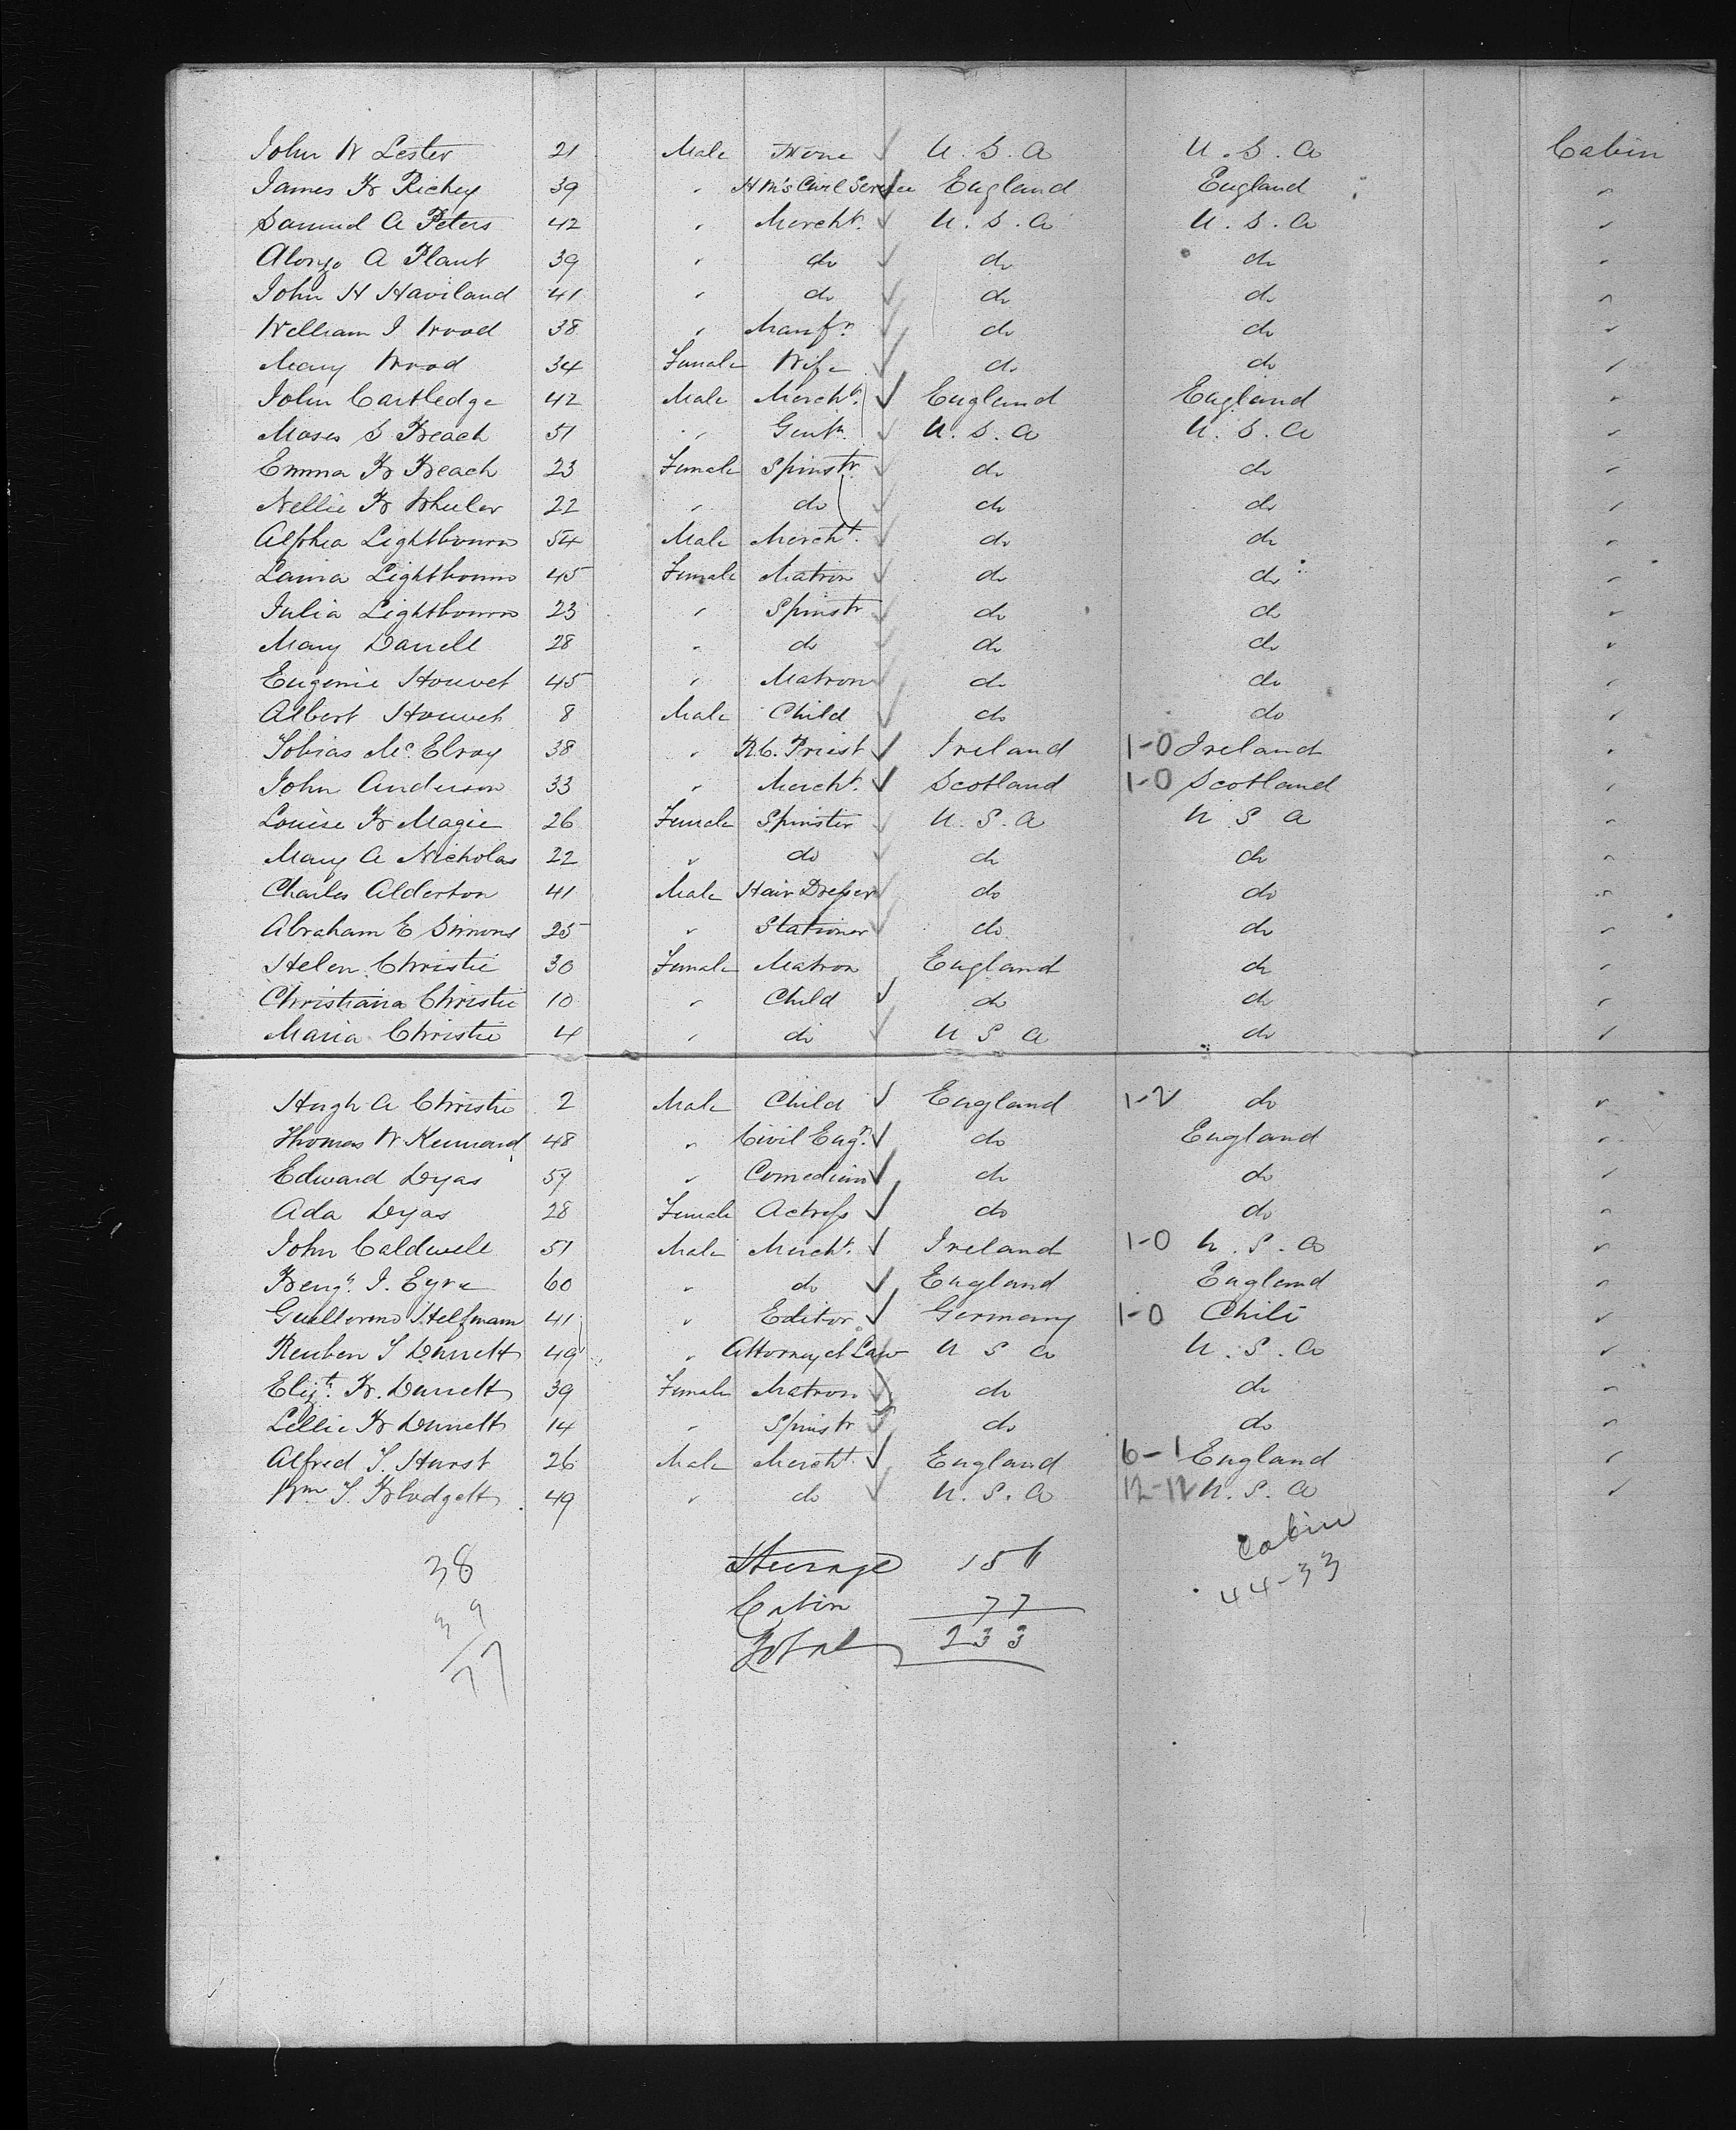 John W Lester 21 Male None U.S.A U.S.A Cabin
James F Richey 39 " H M's Civil Service England England "
Samuel A Peters 42 " Mercht. U.S.A U.S.A "
Alonzo A Plant 39 " do do do "
John H Haviland 41 " do do do "
William J Wood 38 " Manfr. do do "
Mary Wood 34 Female Wife do do "
John Cartledge 42 Male Mercht. England England "
Moses S Beach 51 " Gentn. U.S.A U.S.A "
Emma B Beach 23 Female Spinstr. do do "
Nellie B Wheeler 22 " do do do "
Alphia Lightbourn 54 Male Mercht. do do "
Laura Lightbourn 45 Female Matron do do "
Julia Lightbourn 23 " Spinstr do do "
Mary Darrell 28 " do do do "
Eugenie Houvet 45 " Matron do do "
Albert Houvet 8 Male Child do do "
Tobias Mc. Elroy 38 " R.C. Priest Ireland 1-0 Ireland "
John Anderson 33 " Mercht. Scotland 1-0 Scotland "
Louise F Magie 26 Female Spinster U.S.A U S A "
Mary A Nicholas 22 " do do do "
Charles Alderton 41 Male Hair Dresser do do "
Abraham E Simons 25 " Stationer do do "
Helen Christie 30 Female Matron England do "
Christiana Christie 10 " Child do do "
Maria Christie 4 " do U S A do "
Hugh A Christie 2 Male Child England 1-2 do "
Thomas W Kennard 48 " Civil Engr. do England "
Edward Dyas 57 " Comedian do do "
Ada Dyas 28 Female Actress do do "
John Caldwell 51 Male Mercht. Ireland 1-0 U.S.A "
Benjn. J. Eyre 60 " do England England "
Guillermo Helfmann 41 " Editor Germany 1-0 Chili "
Reuben T Durrett 49 " Attorney at Law U S A U.S.A "
Elizth. B. Durrett 39 Female Matron do do "
Lillie B Durrett 14 " Spinstr do do "
Alfred T. Hurst 26 Male Mercht. England 6-1 England "
Wm T. Blodgett 49 " do U.S.A 12-12 U.S.A "
38 Steerage 156 Cabin
39 Cabin 77 44-33
77 Total 233